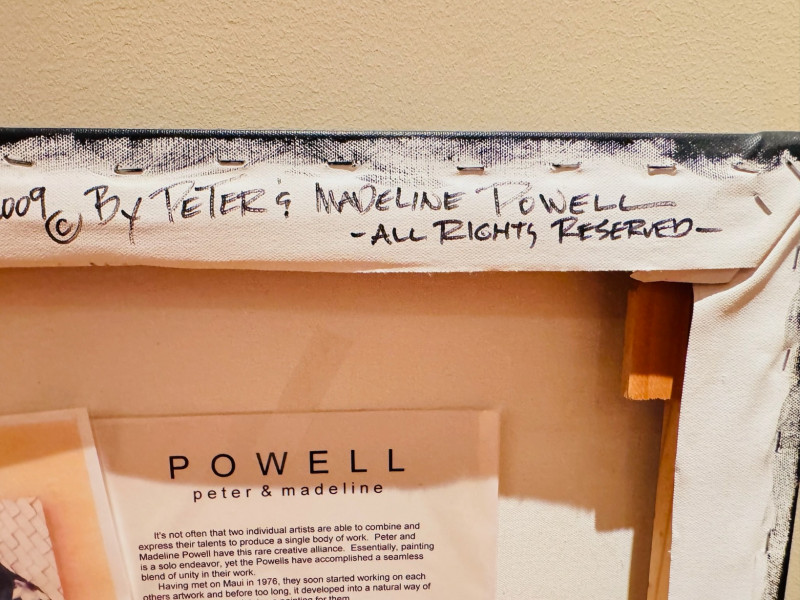 2009 © By PETER & MADELINE POWELL
- ALL RIGHTS RESERVED -
POWELL
peter & madeline
It's not often that two individual artists are able to combine and
express their talents to produce a single body of work. Peter and
Madeline Powell have this rare creative alliance. Essentially, painting
is a solo endeavor, yet the Powells have accomplished a seamless
blend of unity in their work.
Having met on Maui in 1976, they soon started working on each
others artwork and before too long, it developed into a natural way of
painting for them